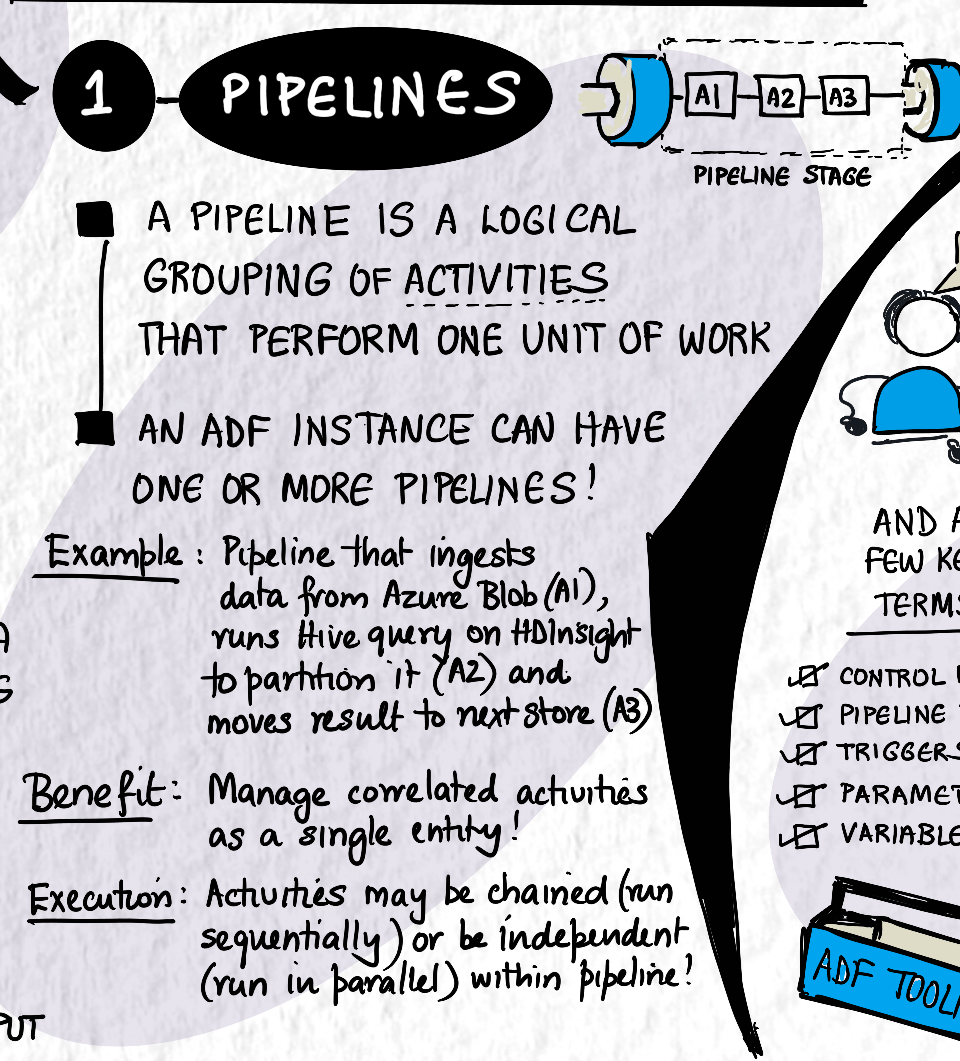 1 PIPELINES
A1 A2 A3
PIPELINE STAGE
A PIPELINE IS A LOGICAL
GROUPING OF ACTIVITIES
THAT PERFORM ONE UNIT OF WORK
AN ADF INSTANCE CAN HAVE
ONE OR MORE PIPELINES!
Example: Pipeline that ingests
data from Azure Blob (A1),
runs Hive query on HDInsight
to partition it (A2) and
moves result to next store (A3)
Benefit: Manage correlated activities
as a single entity!
Execution: Activities may be chained (run
sequentially) or be independent
(run in parallel) within pipeline!
AND
FEW
TERMS
CONTROL
PIPELINE
TRIGGERS
ADF